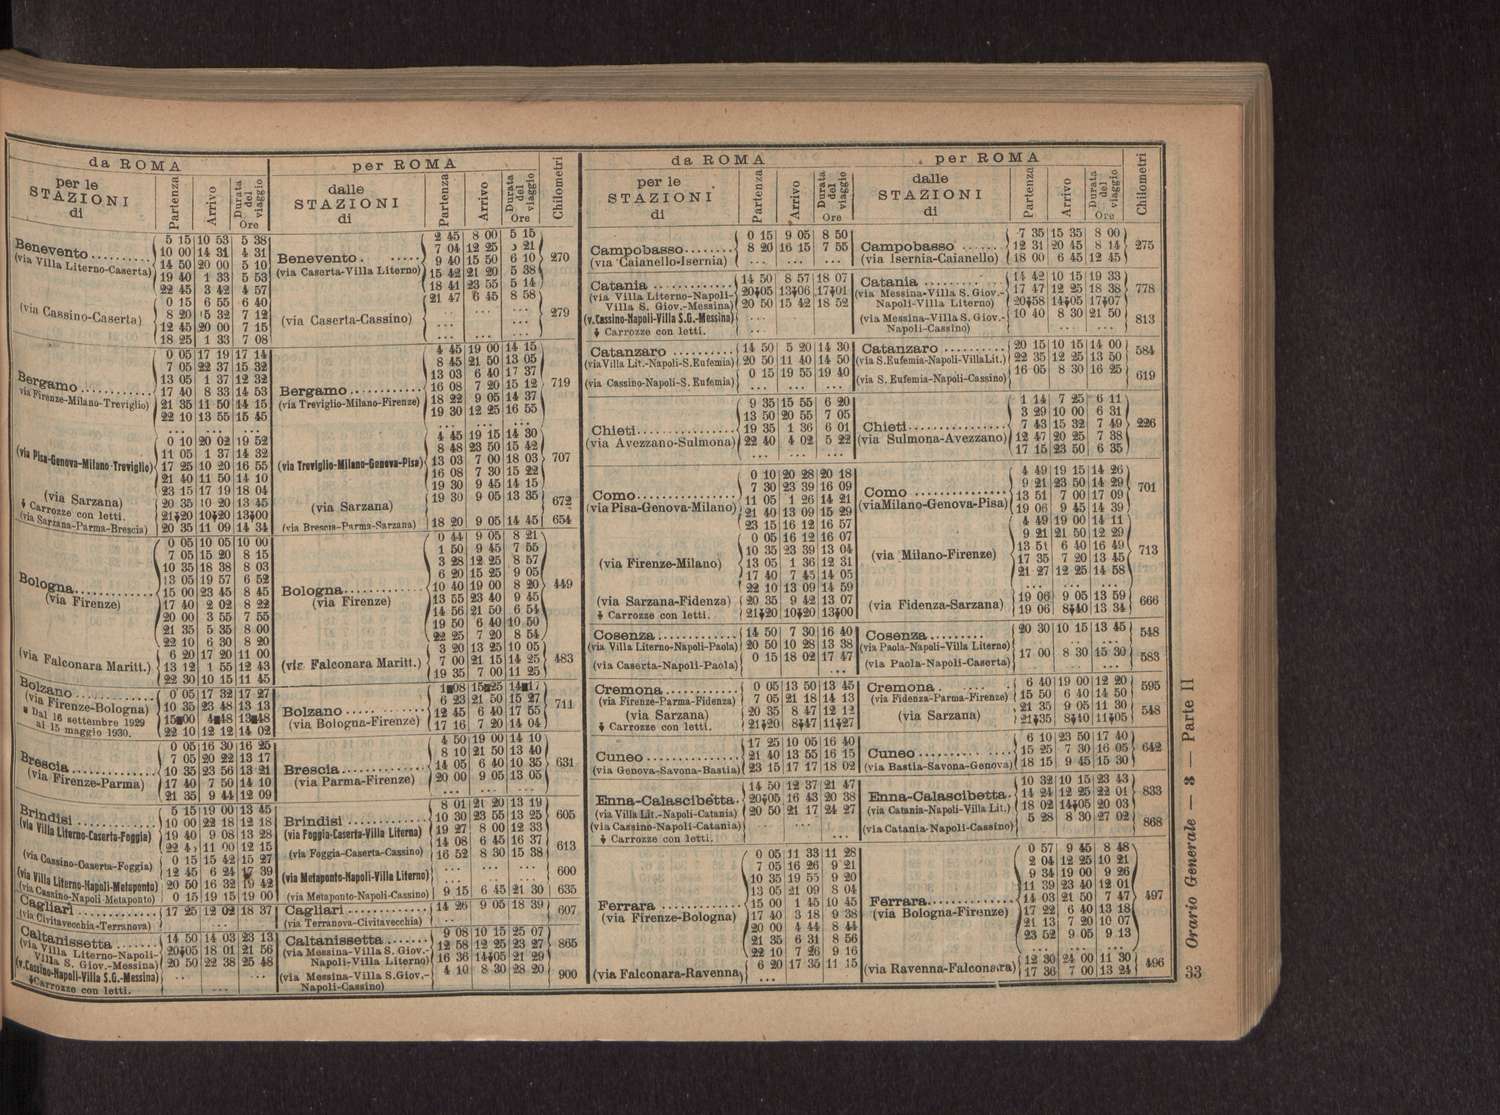 da ROMA
per le STAZIONI di
Partenza
Arrivo
Durata del viaggio
Ore
per ROMA
dalle STAZIONI di
Partenza
Arrivo
Durata del viaggio
Ore
Chilometri
Benevento
(via Villa Literno-Caserta)
5 15 10 53 5 38
10 00 14 31 4 31
14 50 20 00 5 10
19 40 1 33 5 53
22 45 3 42 4 57
(via Cassino-Caserta)
0 15 6 55 6 40
8 20 15 32 7 12
12 45 20 00 7 15
18 25 1 33 7 08
Benevento
(via Caserta-Villa Literno)
2 45 8 00 5 15
7 04 12 25 5 21
9 40 15 50 6 10
15 42 21 20 5 38
18 41 23 55 5 14
270
(via Caserta-Cassino)
21 47 6 45 8 58
279
Bergamo
(via Firenze-Milano-Treviglio)
0 05 17 19 17 14
7 05 22 37 15 32
13 05 1 37 12 32
17 40 8 33 14 53
21 35 11 50 14 15
22 10 13 55 15 45
(via Pisa-Genova-Milano-Treviglio)
0 10 20 02 19 52
11 05 1 37 14 32
17 25 10 20 16 55
21 40 11 50 14 10
23 15 17 19 18 04
(via Sarzana)
20 35 10 20 13 45
Carrozze con letti.
21 20 10 20 13 00
(via Sarzana-Parma-Brescia)
20 35 11 09 14 34
Bergamo
(via Treviglio-Milano-Firenze)
4 45 19 00 14 15
8 45 21 50 13 05
13 03 6 40 17 37
16 08 7 20 15 12
18 22 9 05 14 37
19 30 12 25 16 55
719
(via Treviglio-Milano-Genova-Pisa)
4 45 19 15 14 30
8 48 23 50 15 42
13 03 7 00 18 03
16 08 7 30 15 22
19 30 9 45 14 15
707
(via Sarzana)
19 30 9 05 13 35
672
(via Brescia-Parma-Sarzana)
18 20 9 05 14 45
654
Bologna
(via Firenze)
0 05 10 05 10 00
7 05 15 20 8 15
10 35 18 38 8 03
13 05 19 57 6 52
15 00 23 45 8 45
17 40 2 02 8 22
20 00 3 55 7 55
21 35 5 35 8 00
22 10 6 30 8 20
(via Falconara Maritt.)
6 20 17 20 11 00
13 12 1 55 12 43
22 30 10 15 11 45
Bologna
(via Firenze)
0 44 9 05 8 21
1 50 9 45 7 55
3 28 12 25 8 57
6 20 15 25 9 05
10 40 19 00 8 20
13 55 23 40 9 45
14 56 21 50 6 54
19 50 6 40 10 50
22 25 7 20 8 54
449
(via Falconara Maritt.)
3 20 13 25 10 05
7 00 21 15 14 25
19 35 7 00 11 25
483
Bolzano
(via Firenze-Bologna)
Dal 16 settembre 1929
al 15 maggio 1930.
0 05 17 32 17 27
10 35 23 48 13 13
15■00 4■48 13■48
22 10 12 12 14 02
Bolzano
(via Bologna-Firenze)
1■08 15■25 14■17
6 23 21 50 15 27
12 45 6 40 17 55
17 16 7 20 14 04
711
Brescia
(via Firenze-Parma)
0 05 16 30 16 25
7 05 20 22 13 17
10 35 23 56 13 21
17 40 7 50 14 10
21 35 9 44 12 09
Brescia
(via Parma-Firenze)
4 50 19 00 14 10
8 10 21 50 13 40
14 05 6 40 10 35
20 00 9 05 13 05
631
Brindisi
(via Villa Literno-Caserta-Foggia)
5 15 19 00 13 45
10 00 22 18 12 18
19 40 9 08 13 28
11 00 12 15
(via Cassino-Caserta-Foggia)
0 15 15 42 15 27
12 45 6 24 17 39
(via Villa Literno-Napoli-Metaponto)
20 50 16 32 19 42
(via Cassino-Napoli Metaponto)
0 15 19 15 19 00
Brindisi
(via Foggia-Caserta-Villa Literna)
8 01 21 20 13 19
10 30 23 55 13 25
19 27 8 00 12 33
605
(via Foggia-Caserta-Cassino)
14 08 6 45 16 37
16 52 8 30 15 38
613
(via Metaponto-Napoli-Villa Literno)
600
(via Metaponto-Napoli-Cassino)
9 15 6 45 21 30
635
Cagliari
(via Civitavecchia-Terranova)
17 25 12 02 18 37
Cagliari
(via Terranova-Civitavecchia)
14 26 9 05 18 39
607
Caltanissetta
(via Villa Literno-Napoli-Villa S. Giov.-Messina)
14 50 14 03 23 13
20 05 18 01 21 56
20 50 22 38 25 48
(v. Cassino-Napoli-Villa S.G.-Messina)
Carrozze con letti.
Caltanissetta
(via Messina-Villa S. Giov.-Napoli-Villa Literno)
9 08 10 15 25 07
12 58 12 25 23 27
16 36 14 05 21 29
865
(via Messina-Villa S.Giov.-Napoli-Cassino)
4 10 8 30 28 20
900
da ROMA
per le STAZIONI di
Partenza
Arrivo
Durata del viaggio
Ore
per ROMA
dalle STAZIONI di
Partenza
Arrivo
Durata del viaggio
Ore
Chilometri
Campobasso
(via Caianello-Isernia)
0 15 9 05 8 50
8 20 16 15 7 55
Campobasso
(via Isernia-Caianello)
7 35 15 35 8 00
12 31 20 45 8 14
18 00 6 45 12 45
275
Catania
(via Villa Literno-Napoli-Villa S. Giov.-Messina)
14 50 8 57 18 07
20 05 13 06 17 01
20 50 15 42 18 52
(v. Cassino-Napoli-Villa S.G.-Messina)
Carrozze con letti.
Catania
(via Messina-Villa S. Giov.-Napoli-Villa Literno)
14 42 10 15 19 33
17 47 12 25 18 38
20 58 14 05 17 07
778
(via Messina-Villa S. Giov.-Napoli-Cassino)
10 40 8 30 21 50
813
Catanzaro
(via Villa Lit.-Napoli-S.Eufemia)
14 50 5 20 14 30
20 50 11 40 14 50
(via Cassino-Napoli-S.Eufemia)
0 15 19 55 19 40
Catanzaro
(via S.Eufemia-Napoli-Villa Lit.)
20 15 10 15 14 00
22 35 12 25 13 50
584
(via S. Eufemia-Napoli-Cassino)
16 05 8 30 16 25
619
Chieti
(via Avezzano-Sulmona)
9 35 15 55 6 20
13 50 20 55 7 05
19 35 1 36 6 01
22 40 4 02 5 22
Chieti
(via Sulmona-Avezzano)
1 14 7 25 6 11
3 29 10 00 6 31
7 43 15 32 7 49
12 47 20 25 7 38
17 15 23 50 6 35
226
Como
(via Pisa-Genova-Milano)
0 10 20 28 20 18
7 30 23 39 16 09
11 05 1 26 14 21
21 40 13 09 15 29
23 15 16 12 16 57
(via Firenze-Milano)
0 05 16 12 16 07
10 35 23 39 13 04
13 05 1 36 12 31
17 40 7 45 14 05
22 10 13 09 14 59
(via Sarzana-Fidenza)
20 35 9 42 13 07
Carrozze con letti.
21 20 10 20 13 00
Como
(via Milano-Genova-Pisa)
4 49 19 15 14 26
9 21 23 50 14 29
13 51 7 00 17 09
19 06 9 45 14 39
701
(via Milano-Firenze)
4 49 19 00 14 11
9 21 21 50 12 29
13 51 6 40 16 49
17 35 7 20 13 45
21 27 12 25 14 58
713
(via Fidenza-Sarzana)
19 06 9 05 13 59
19 06 8 40 13 34
666
Cosenza
(via Villa Literno-Napoli-Paola)
14 50 7 30 16 40
20 50 10 28 13 38
(via Caserta-Napoli-Paola)
0 15 18 02 17 47
Cosenza
(via Paola-Napoli-Villa Literno)
20 30 10 15 13 45
548
(via Paola-Napoli-Caserta)
17 00 8 30 15 30
583
Cremona
(via Firenze-Parma-Fidenza)
0 05 13 50 13 45
7 05 21 18 14 13
(via Sarzana)
20 35 8 47 12 12
Carrozze con letti.
21 20 8 47 11 27
Cremona
(via Fidenza-Parma-Firenze)
6 40 19 00 12 20
15 50 6 40 14 50
595
(via Sarzana)
21 35 9 05 11 30
21 35 8 40 11 05
548
Cuneo
(via Genova-Savona-Bastia)
17 25 10 05 16 40
21 40 13 55 16 15
23 15 17 17 18 02
Cuneo
(via Bastia-Savona-Genova)
6 10 23 50 17 40
15 25 7 30 16 05
18 15 9 45 15 30
642
Enna-Calascibetta
(via Villa Lit.-Napoli-Catania)
14 50 12 37 21 47
20 05 16 43 20 38
20 50 21 17 24 27
(via Cassino-Napoli-Catania)
Carrozze con letti.
Enna-Calascibetta
(via Catania-Napoli-Villa Lit.)
10 32 10 15 23 43
14 24 12 25 22 01
18 02 14 05 20 03
833
(via Catania-Napoli-Cassino)
5 28 8 30 27 02
868
Ferrara
(via Firenze-Bologna)
0 05 11 33 11 28
7 05 16 26 9 21
10 35 19 55 9 20
13 05 21 09 8 04
15 00 1 45 10 45
17 40 3 18 9 38
20 00 4 44 8 44
21 35 6 31 8 56
22 10 7 26 9 16
(via Falconara-Ravenna)
6 20 17 35 11 15
Ferrara
(via Bologna-Firenze)
0 57 9 45 8 48
2 04 12 25 10 21
9 34 19 00 9 26
11 39 23 40 12 01
14 03 21 50 7 47
17 22 6 40 13 18
21 13 7 20 10 07
23 52 9 05 9 13
497
(via Ravenna-Falconara)
12 30 24 00 11 30
17 36 7 00 13 24
496
33 Orario Generale — 3 — Parte II